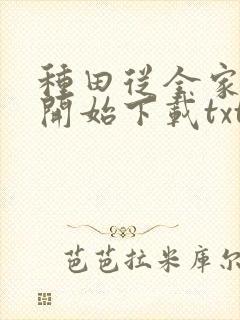 種田從全家
開始下載txt
芭芭拉米库尔